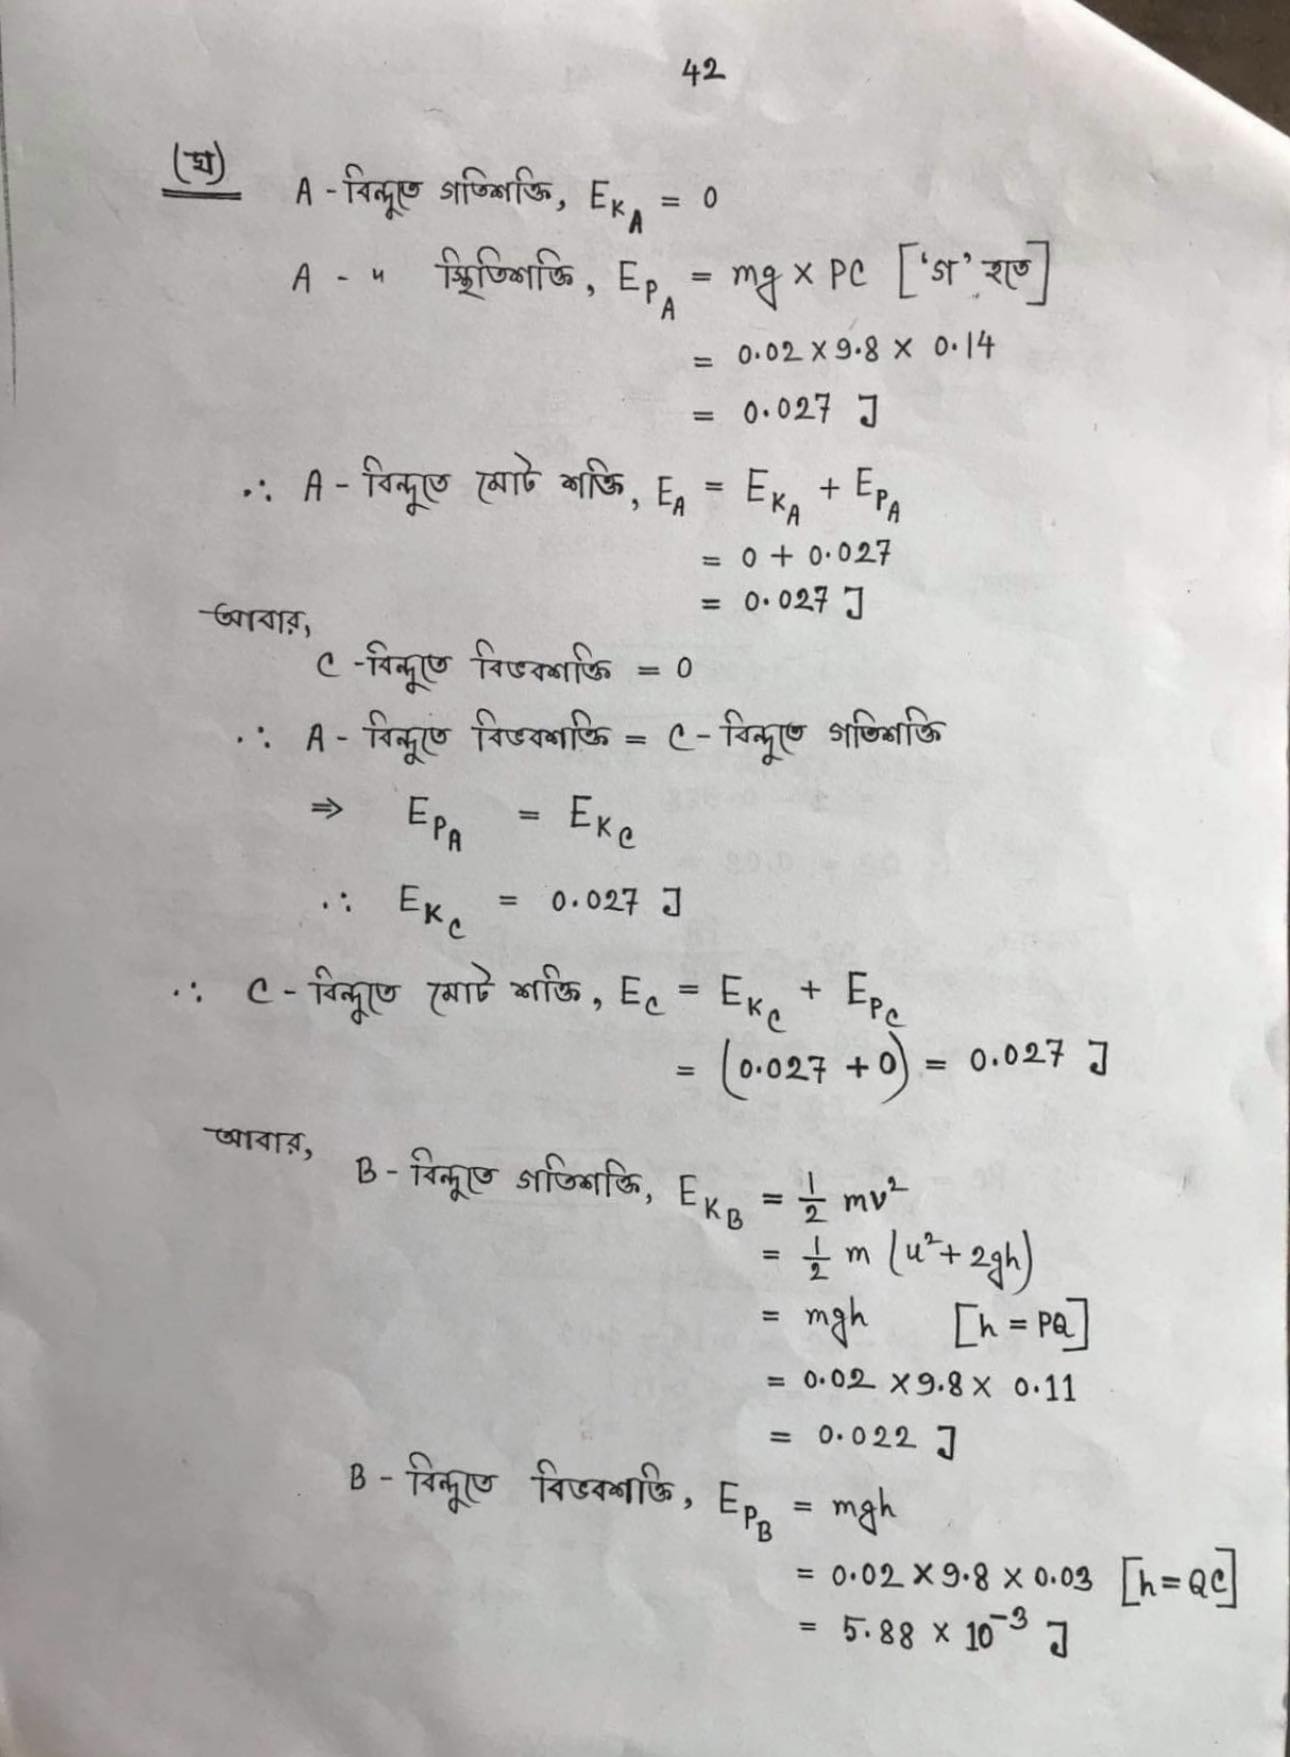 42
(ঘ) A - বিন্দুতে গতিশক্তি, E_{K_A} = 0
A - " স্থিতিশক্তি, E_{P_A} = mg × PC ['গ' হতে]
= 0.02 × 9.8 × 0.14
= 0.027 J
∴ A - বিন্দুতে মোট শক্তি, E_A = E_{K_A} + E_{P_A}
= 0 + 0.027
= 0.027 J
আবার,
C - বিন্দুতে বিভবশক্তি = 0
∴ A - বিন্দুতে বিভবশক্তি = C - বিন্দুতে গতিশক্তি
⇒ E_{P_A} = E_{K_C}
∴ E_{K_C} = 0.027 J
∴ C - বিন্দুতে মোট শক্তি, E_C = E_{K_C} + E_{P_C}
= (0.027 + 0) = 0.027 J
আবার,
B - বিন্দুতে গতিশক্তি, E_{K_B} = 1/2 mv²
= 1/2 m (u² + 2gh)
= mgh [h = PQ]
= 0.02 × 9.8 × 0.11
= 0.022 J
B - বিন্দুতে বিভবশক্তি, E_{P_B} = mgh
= 0.02 × 9.8 × 0.03 [h = QC]
= 5.88 × 10⁻³ J